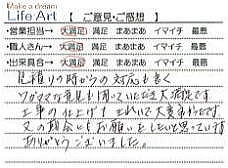 Make a dream
Life Art 【 ご意見・ご感想 】
・営業担当→ 大満足 満足 まあまあ イマイチ 最悪
・職人さん→ 大満足 満足 まあまあ イマイチ 最悪
・出来具合→ 大満足 満足 まあまあ イマイチ 最悪
見積りの時からの対応も良く
ワガママな意見も聞いていただき大満足です
工事の仕上げも とれいで大変よかったです
又の機会にもお願いしたいと思っています
ありがとうございました。